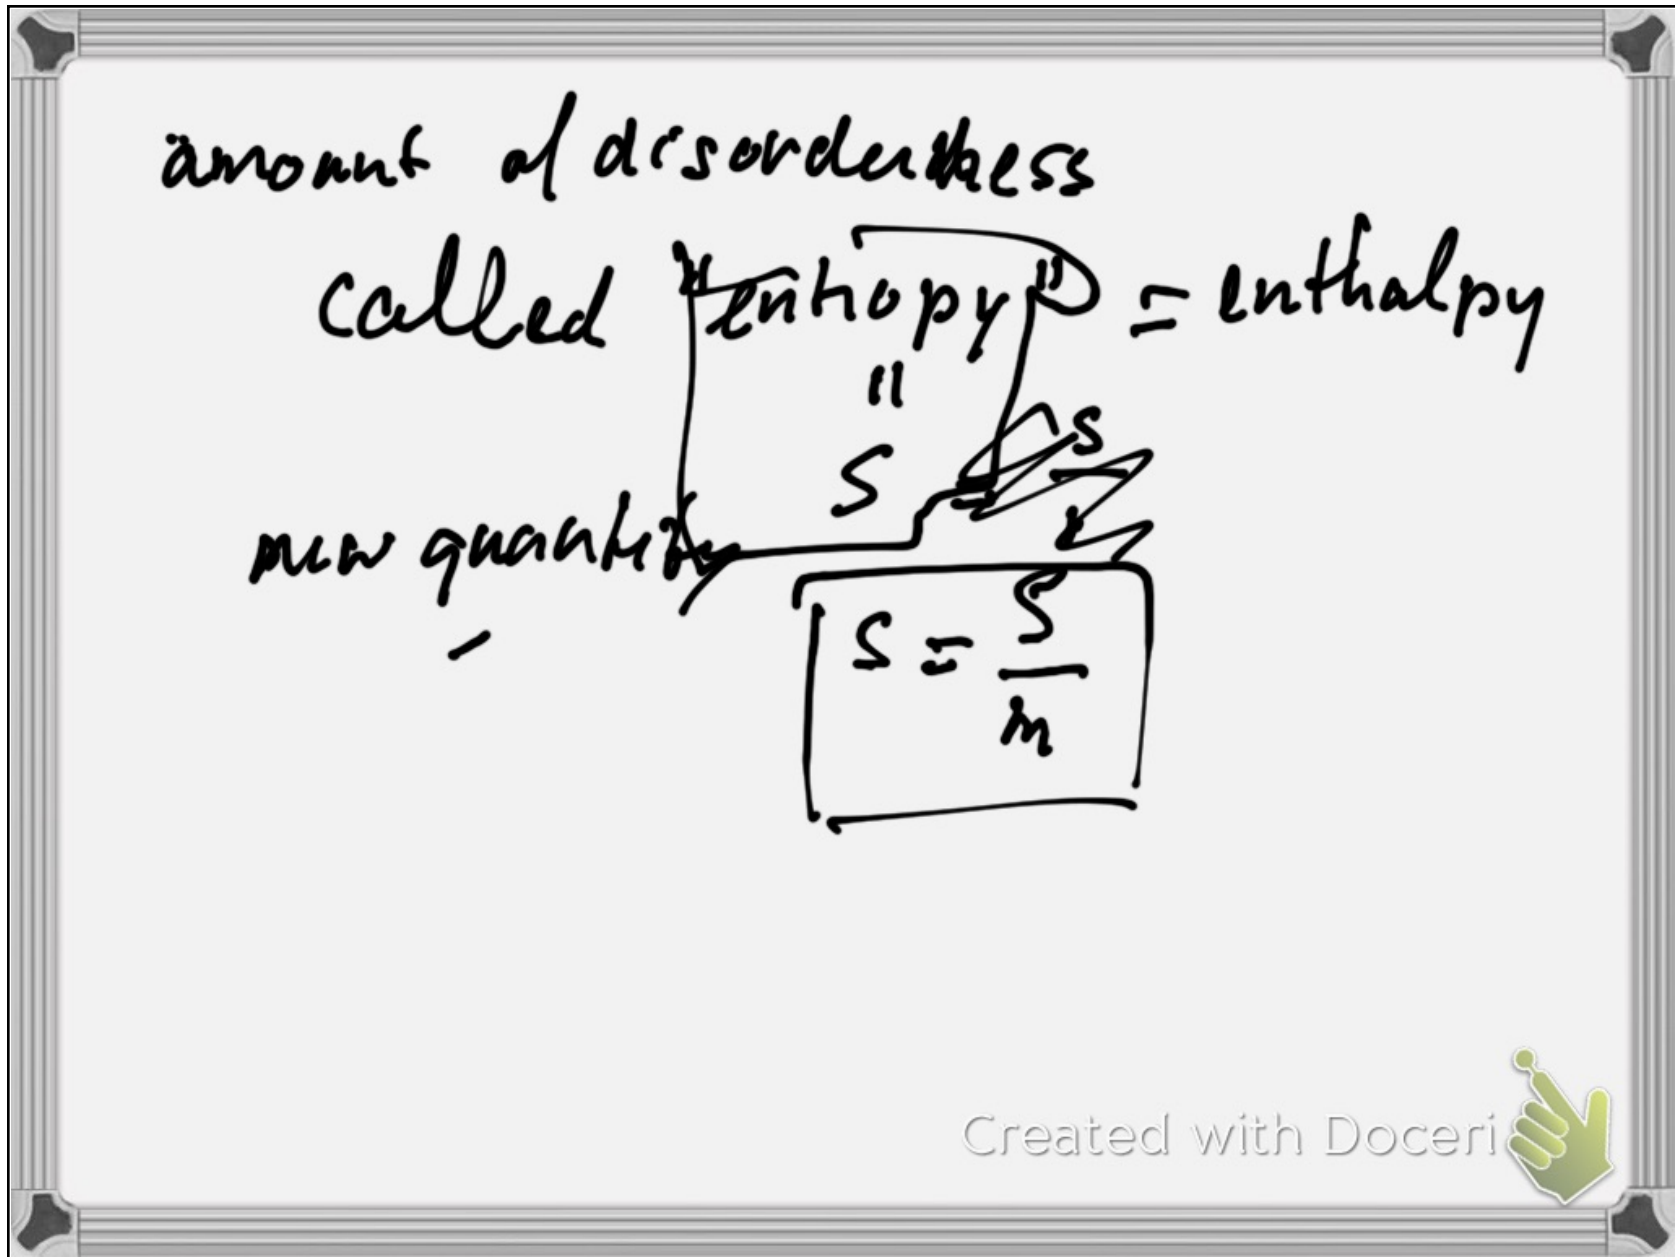 amount of disorderness
called "entropy" = enthalpy
=
S
new quantity
s = S/m
Created with Doceri